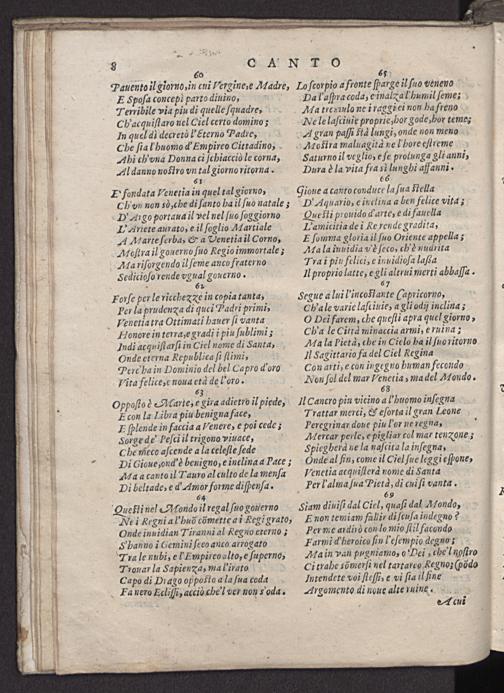 8 CANTO
60
Pauento il giorno, in cui Vergine, e Madre,
E Sposa concepì parto diuino,
Terribile via piu di quelle squadre,
Ch'acquistaro nel Ciel certo domino;
In quel dì decretò l'Eterno Padre,
Che sia l'huomo d'Empireo Cittadino,
Ahi ch'vna Donna ci schiacciò le corna,
Al danno nostro vn tal giorno ritorna.
61
E' fondata Venetia in quel tal giorno,
Ch'vn non sò, che di santo ha il suo natale;
D'Argo portaua il vel nel suo soggiorno
L'Ariete aurato, e il soglio Martiale
A Marte serba, & a Venetia il Corno,
Mostra il gouerno suo Regio immortale;
Ma risorgendo il seme anco fraterno
Sedicioso rende vgual gouerno.
62
Forse per le ricchezze in copia tanta,
Per la prudenza di quei Padri primi,
Venetia tra Ottimati hauer si vanta
Honore in terra, e gradi i piu sublimi;
Indi acquistarsi in Ciel nome di Santa,
Onde eterna Republica si stimi,
Perc'ha in Dominio del bel Capro d'oro
Vita felice, e noua età de l'oro.
63
Opposto è Marte, e gira adietro il piede,
E con la Libra piu benigna face,
E splende in faccia a Venere, e poi cede;
Sorge de' Pesci il trigono viuace,
Che meco ascende a la celeste sede
Di Gioue, ond'è benigno, e inclina a Pace;
Ma a canto il Tauro al culto de la mensa
Di beltade, e d'Amor forme dispensa.
64
Questi nel Mondo il regal suo gouerno
Ne i Regni a l'huō cōmette a i Regi grato,
Onde inuidian Tiranni al Regno eterno;
S'hanno i Gemini seco anco arrogato
Tra le nubi, e l'Empireo alto, e superno,
Tronar la Sapienza, ma l'irato
Capo di Drago opposto a la sua coda
Fa nero Eclissi, acciò che'l ver non s'oda.
65
Lo scorpio a fronte sparge il suo veneno
Da l'aspra coda, e inalza l'humil seme;
Ma tremulo ne i raggi ei non ha freno
Ne le lasciuie proprie, hor gode, hor teme;
A gran passi stà lungi, onde non meno
Mostra maluagità ne l'hore estreme
Saturno il veglio, e se prolunga gli anni,
Dura è la vita fra sì lunghi affanni.
66
Gioue a canto conduce la sua stella
D'Aquario, e inclina a ben felice vita;
Questi prouido d'arte, e di fauella
L'amicitia de i Re rende gradita,
E somma gloria il suo Oriente appella;
Ma la inuidia v'è seco, ch'è nudrita
Tra i piu felici, e inuidiosa lassa
Il proprio latte, e gli altrui merti abbassa.
67
Segue a lui l'incostante Capricorno,
Ch'a le varie lasciuie, a gli odij inclina;
O Dei farem, che questi apra quel giorno,
Ch'a le Città minaccia armi, e ruina;
Ma la Pietà, che in Cielo ha il suo ritorno
Il Sagittario fa del Ciel Regina
Con arti, e con ingegno human fecondo
Non sol del mar Venetia, ma del Mondo.
68
Il Cancro piu vicino a l'huomo insegna
Trattar merci, & esorta il gran Leone
Peregrinar doue piu l'or ne regna,
Mercar perle, e pigliar col mar tenzone;
Spiegherà ne la nascita la insegna,
Onde al fin, come il Ciel sue leggi espone,
Venetia acquisterà nome di Santa
Per l'alma sua Pietà, di cui si vanta.
69
Siam diuisi dal Ciel, quasi dal Mondo,
E non temiam fallir di scusa indegno?
Per me ardirò con lo mio stil facondo
Farmi d'heroico fin l'esempio degno;
Ma in van pugniamo, o Dei, che'l nostro
Ci trahe sōmersi nel tartareo Regno; (pōdo
Intendete voi stessi, e vi sia il fine
Argomento di noue alte ruine.
A cui